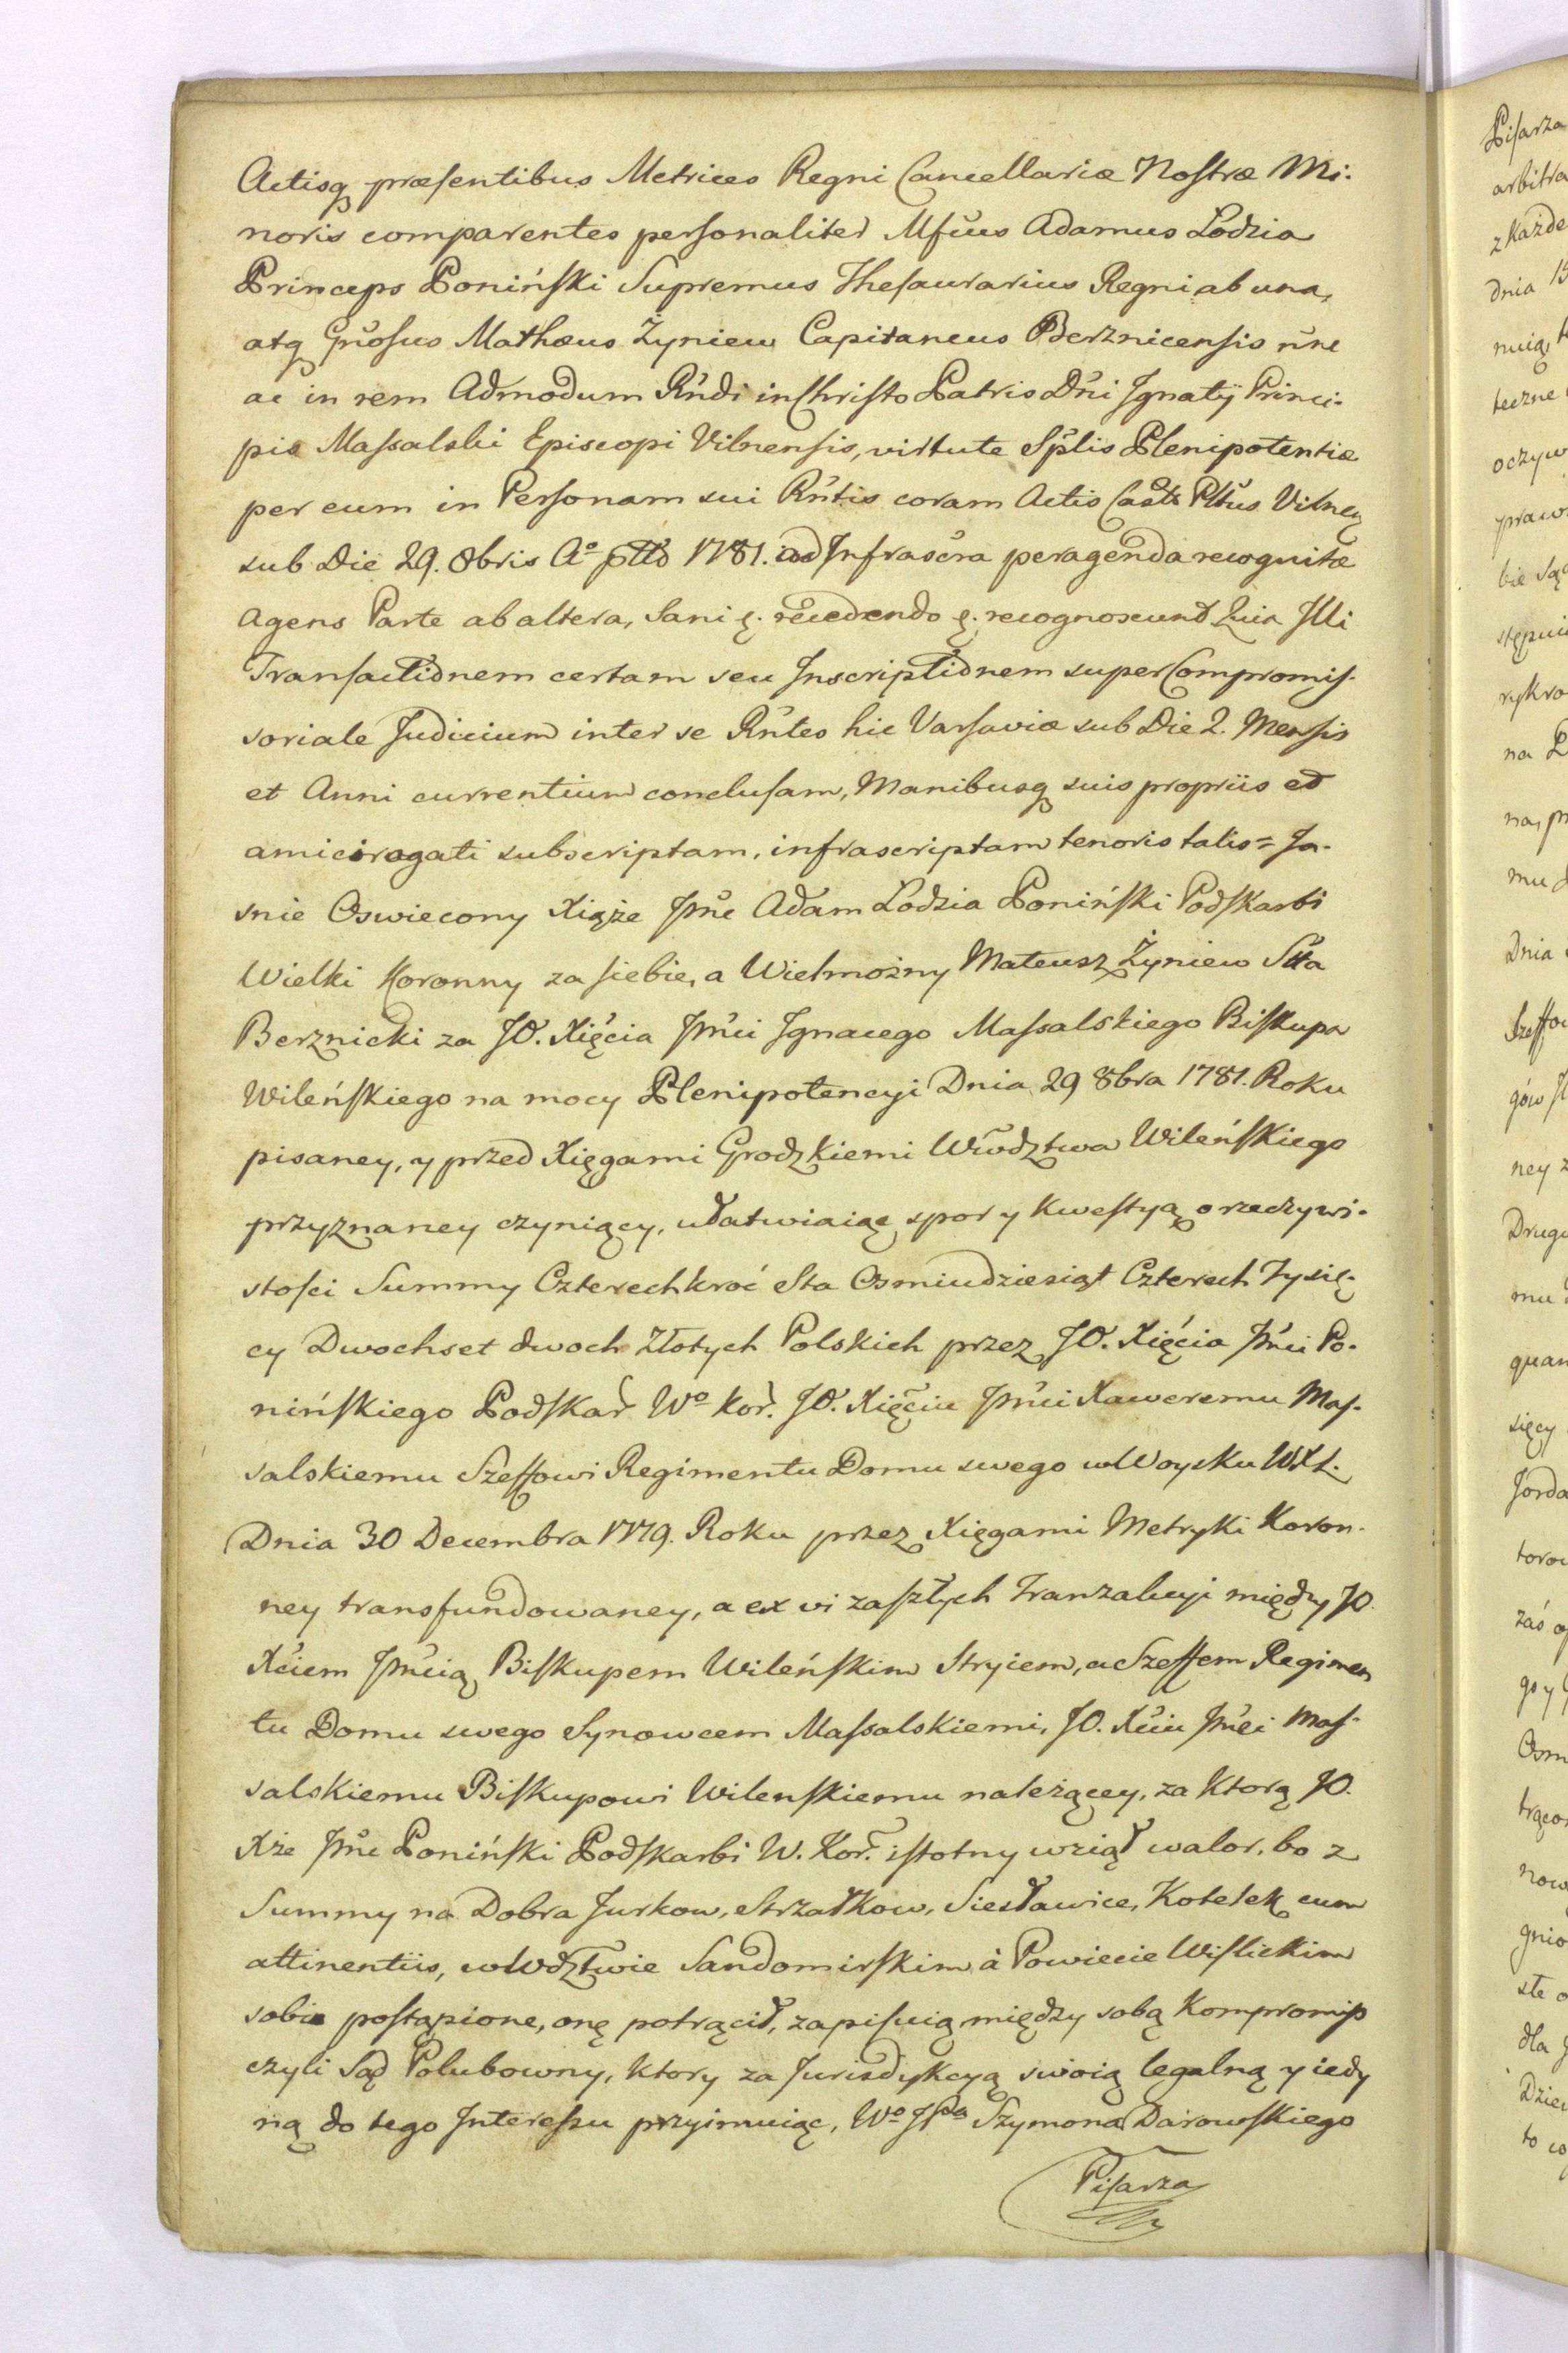 Actisq præsentibus Metrices Regni Cancellariæ Nostræ Mi-
noris comparentes personaliter Mfcus Adamus Lodzia
Princeps Poniński Supremus Thesaurarius Regni ab una,
atq Gnosus Mathæus Żyniew Capitaneus Berznicensis nne
ac in rem Admodum Rndi in Christo Patris Dni Ignatÿ Princi-
pis Massalski Episcopi Vilnensis, virtute Splis Plenipotentiæ
per eum in Personam sui Rntis coram Actis Castr Pltus Vilnen
sub Die 29. 8bris Aº 1781. ad Infrascra peragenda recognitæ
Agens Parte ab altera, Sani ę. recedendo ę. recognoscunt Quia Illi
Transactionem certam seu Inscriptionem super Compromis-
soriale Judicium inter se Rntes hic Varsaviæ sub Die 2. Mensis
et Anni currentium conclusam, Manibusq suis propriis et
amici rogati subscriptam, infrascriptam tenoris talis = Ja-
snie Oswiecony Xiąże Jmc Adam Lodzia Poniński Podskarbi
Wielki Koronny za siebie, a Wielmożny Mateusz Żyniew Stta
Berznicki za JO. Xięcia Jmci Ignacego Massalskiego Biskupa
Wileńskiego na mocy Plenipotencyi Dnia 29 8bra 1781. Roku
pisaney, y przed Xięgami Grodzkiemi Wwodztwa Wileńskiego
przyznaney czyniący, ułatwiaiąc spor y kwestyą o rzeczywi-
stości Summy Czterechkroć Sta Osmiudziesiąt Czterech Tysię-
cy Dwochset dwoch Złotych Polskich przez JO. Xięcia Jmci Po-
nińskiego Podskar Wº Kor. JO. Xięciu Jmci Xaweremu Mas-
salskiemu Szeffowi Regimentu Domu swego w Woysku WXL.
Dnia 30 Decembra 1779. Roku przez Xięgami Metryki Koron-
ney transfundowaney, a ex vi zaszłych Tranzakcyi między JO.
Xciem Jmcią Biskupem Wileńskim Stryiem, a Szeffem Regimen
tu Domu swego Synowcem Massalskiemi, JO. Xciu Jmci Mas-
salskiemu Biskupowi Wilenskiemu należącey, za Ktorą JO.
Xże Jmc Poniński Podskarbi W. Kor. istotny wziął walor, bo z
Summy na Dobra Jurkow, Strzałkow, Siesławice, Kotelek cum
attinentiis, w Wdztwie Sandomirskim à Powiecie Wislickim
sobie postąpione, onę potrącił, zapisuią między sobą Kompromiss
czyli Sąd Polubowny, ktory za Jurisdykcyą swoią legalną y iedy
ną do tego Interessu przyimuiąc, Wº JPa Szymona Darowskiego
Pisarza